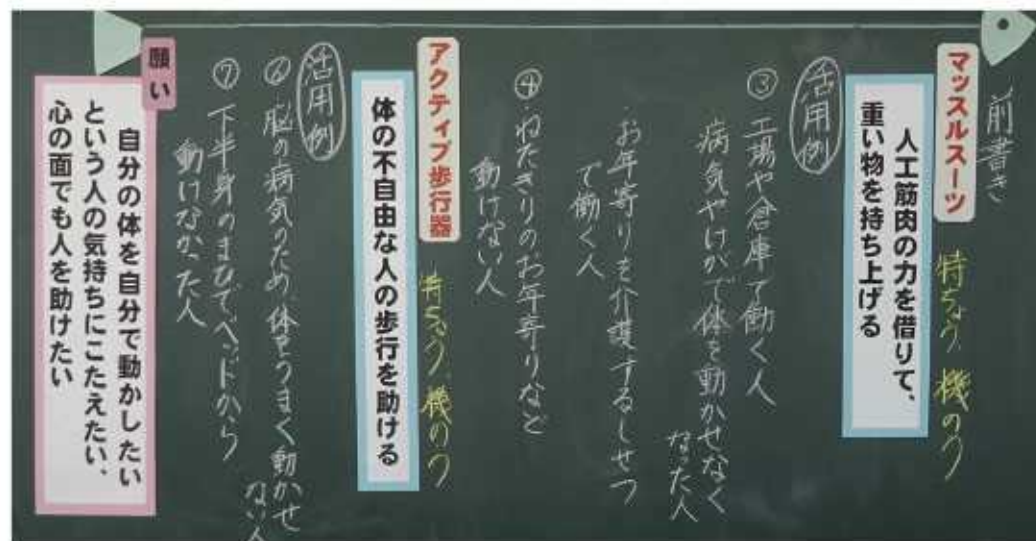 前書き
マッスルスーツ
特ちょう、機のう
人工筋肉の力を借りて、
重い物を持ち上げる
活用例
③工場や倉庫で働く人
病気やけがで体を動かせなく
なった人
お年寄りを介護するしせつ
で働く人
④・ねたきりのお年寄りなど
動けない人
アクティブ歩行器
特ちょう、機のう
体の不自由な人の歩行を助ける
活用例
⑥脳の病気のため、体をうまく動かせ
ない人
⑦下半身のまひでベッドから
動けなかった人
願い
自分の体を自分で動かしたい
という人の気持ちにこたえたい、
心の面でも人を助けたい